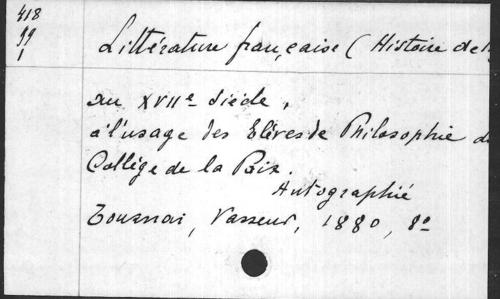 418
99
1
Littérature française (Histoire de l
au XVIIe siècle,
à l'usage des Elèves de Philosophie d
Collège de la Paix.
Autographié
Tournai, Vasseur, 1880, 8º